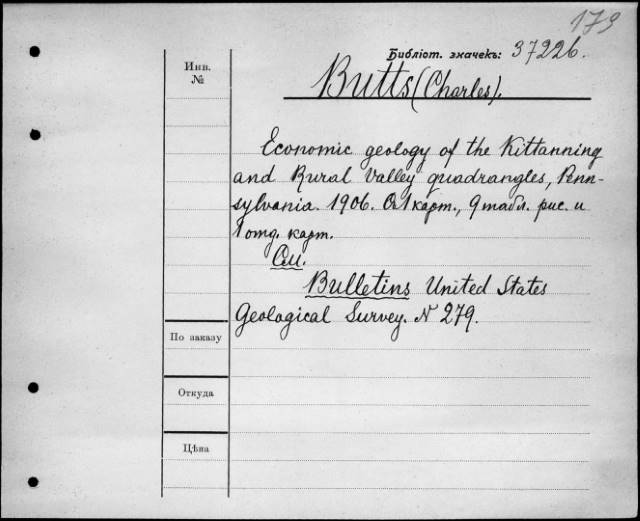 179
Библіот. значекъ: 37226.
Инв.
№
Butts (Charles).
Economic geology of the Kittanning
and Rural Valley quadrangles, Penn-
sylvania. 1906. С 1 карт., 9 табл. рис. и
1 отд. карт.
См.
Bulletins United States
Geological Survey. N 279.
По заказу
Откуда
Цѣна